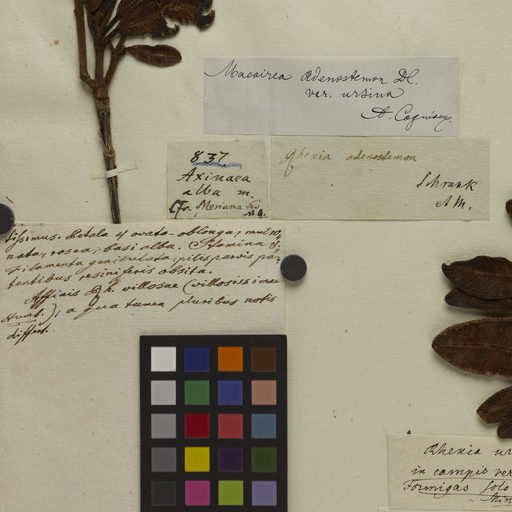 Macairea adenostemon DC.
var. ursina
A. Cogniaux
837
Axinaea
alba m.
Cfr. Meriana
Rhexia adenostemon
Schrank
& M.
tissimus. Petala 4 ovato-oblonga, mucro
nata, rosea, basi alba. Stamina
filamenta geniculata, pilis parvis pa
tentibus resiniferis obsita.
Affinis villosae (villosissimae
), a qua tamen pluribus notis
differt.
Rhexia ur
in campis
Formigas solo